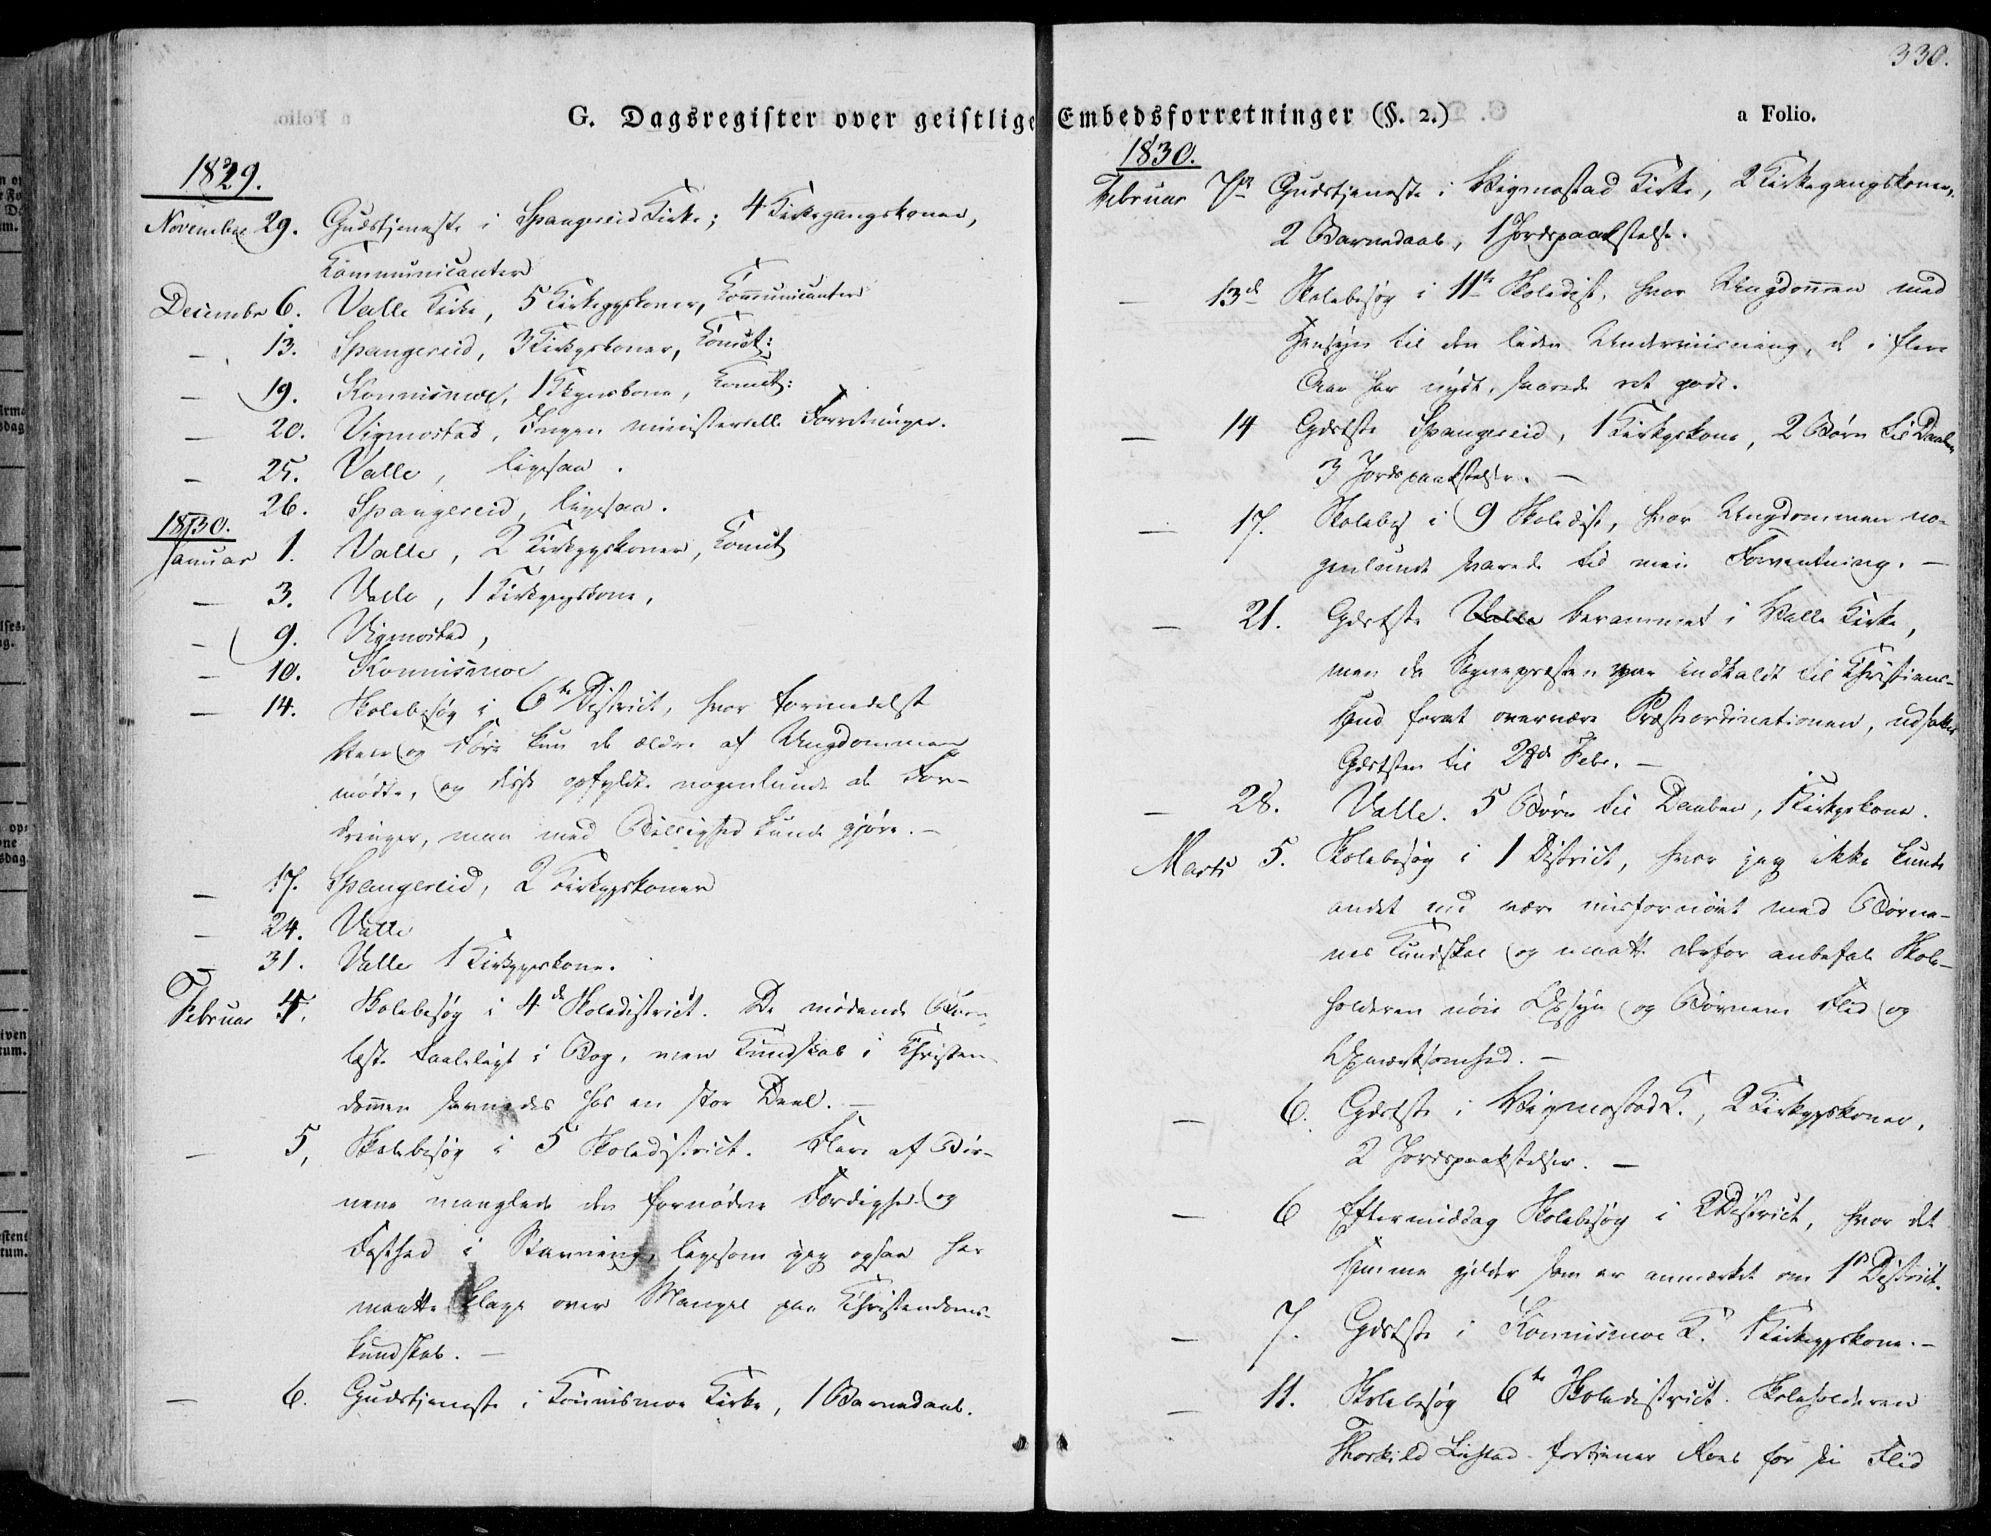 330.
G. Dagsregister over geistlige Embedsforretninger (§. 2.)
a Folio.
1829.
November 29. Gudstjeneste i Spangereid Kirke; 4 Kirkegangskoner,
Communicanter
December 6. Valle Kirke, 5 Kirkegskoner, Communicanter
— 13. Spangereid, 3 Kirkgskoner, Comct:
— 19. Konnismoe, 1 Kgangskone, Comct:
— 20. Vigmostad, Ingen ministerielle Forretninger.
— 25. Valle, ligesaa.
26. Spangereid, ligesaa.
1830.
Januar 1. Valle, 2 Kirkegskoner, Comct
— 3. Valle, 1 Kirkgangskone,
— 9. Vigmostad,
— 10. Konnismoe
— 14. Skolebesøg i 6te District, hvor formedelst
Veir og Føre kun de ældre af Ungdommen
mødte, og disse opfyldte nogenlunde de For-
dringer, man med Billighed kunde gjøre. —
— 17. Spangereid, 2 Kirkegskoner
— 24. Valle
— 31. Valle 1 Kirkegskone.
Februar 4. Skolebesøg i 4de Skoledistrict. De mødende Børn
læste taaleligt i Bog, men Kundskab i Christen-
dommen savnedes hos en stor Deel. —
— 5, Skolebesøg i 5 Skoledistrict. Flere af Bør-
nene manglede den fornødne Færdighed og
Fasthed i Stavning, ligesom jeg ogsaa her
maatte klage over Mangel paa Christendoms-
kundskab. —
— 6. Gudstjeneste i Konnismoe Kirke, 1 Barnedaab.
1830.
Februar 7de Gudstjeneste i Vigmostad Kirke, 2 Kirkegangskoner,
2 Barnedaab, 1 Jordspaakastelse.
— 13de Skolebesøg i 11te Skoledist. hvor Ungdommen med
Hensyn til den liden Underviisning, de i flere
Aar har nydt, svarede ret godt.
— 14 Gdstste Spangereid, 1 Kirkgskone, 2 Børn til Daaben
3 Jordspaakastelser. —
— 17. Skolebes i 9 Skoledist, hvor Ungdommen no-
genlunde svarede til min Forventning. —
— 21. Gdstste Valle berammet i Valle Kirke,
men da Sognepræsten var indkaldt til Christian-
sand forat overvære Præsteordinationen, udsattes
Gdststen til 28de Febr. —
— 28. Valle. 5 Børn til Daaben, 1 Kirkgskone.
Marts 5. Skolebesøg i 1 District, hvor jeg ikke kunde
andet end være misfornøiet med Børne-
nes Kundskab og maatte derfor anbefale Skole-
holderen nøie Opsyn og Børnene Flid og
Opmærksomhed. —
— 6. Gdstste i Vigmostad K., 2 Kirkegskoner,
2 Jordspaakastelser. —
— 6 Eftermiddag Skolebesøg i 2 District, hvor det
samme gjelder som er anmærket om 1ste District.
— 7. Gdstste i Konnismoe K. 1 Kirkegskone. —
— 11. Skolebesøg 6te Skoledistrict. Skoleholderen
Thorkild Liestad fortjener Roes for sin Flid